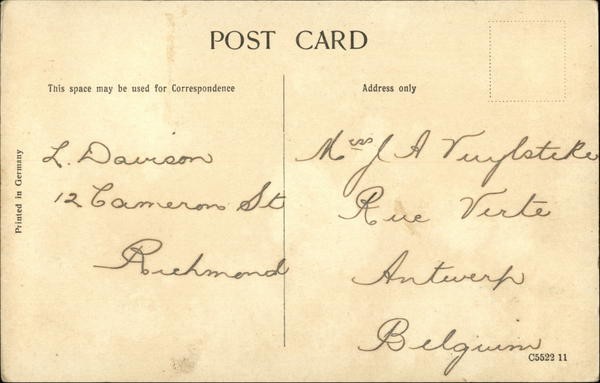 POST CARD
This space may be used for Correspondence
Address only
Printed in Germany
L. Davison
12 Cameron St
Richmond
Miss J A Vuylsteke
Rue Verte
Antwerp
Belguim
C5522 11